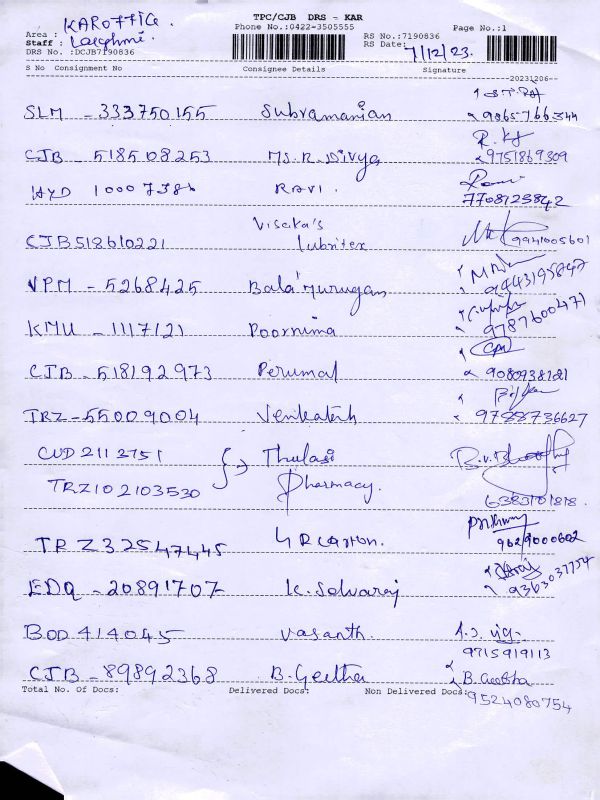 TPC/CJB DRS - KAR
Phone No.:0422-3505555 Page No.:1
Area : KAROFFICE.
Staff : Lacphmi.
DRS No. :DCJB7190836
RS No.:7190836
RS Date: 7/12/23.
S No Consignment No Consignee Details Signature
20231206
SLM - 333750155 Subramanian 9865766344
CJB - 518508253 MS. R. Divya 9751869309
HYD 10007386 RAVI. Ravi 7708123842
CJB518610221 Viseka's Lubritex 9941005601
VPM - 5268425 Bala Murugan 9443195847
KMU - 1117121 Poornima 9787600471
CJB - 518192973 Perumal 9080938181
TRZ - 55009004 Venkatesh 9788736627
CUD 2113751 Thulasi
TRZ102103530 Pharmacy. 6383701818.
TRZ32547445 4 R Carton. 9629000602
EDQ - 20891707 K. Selvaraj 9363037754
BOD 414045 Vasanth. 9715919113
CJB - 89892368 B. Geetha B. Geetha
Total No. Of Docs: Delivered Docs: Non Delivered Docs: 9524080754